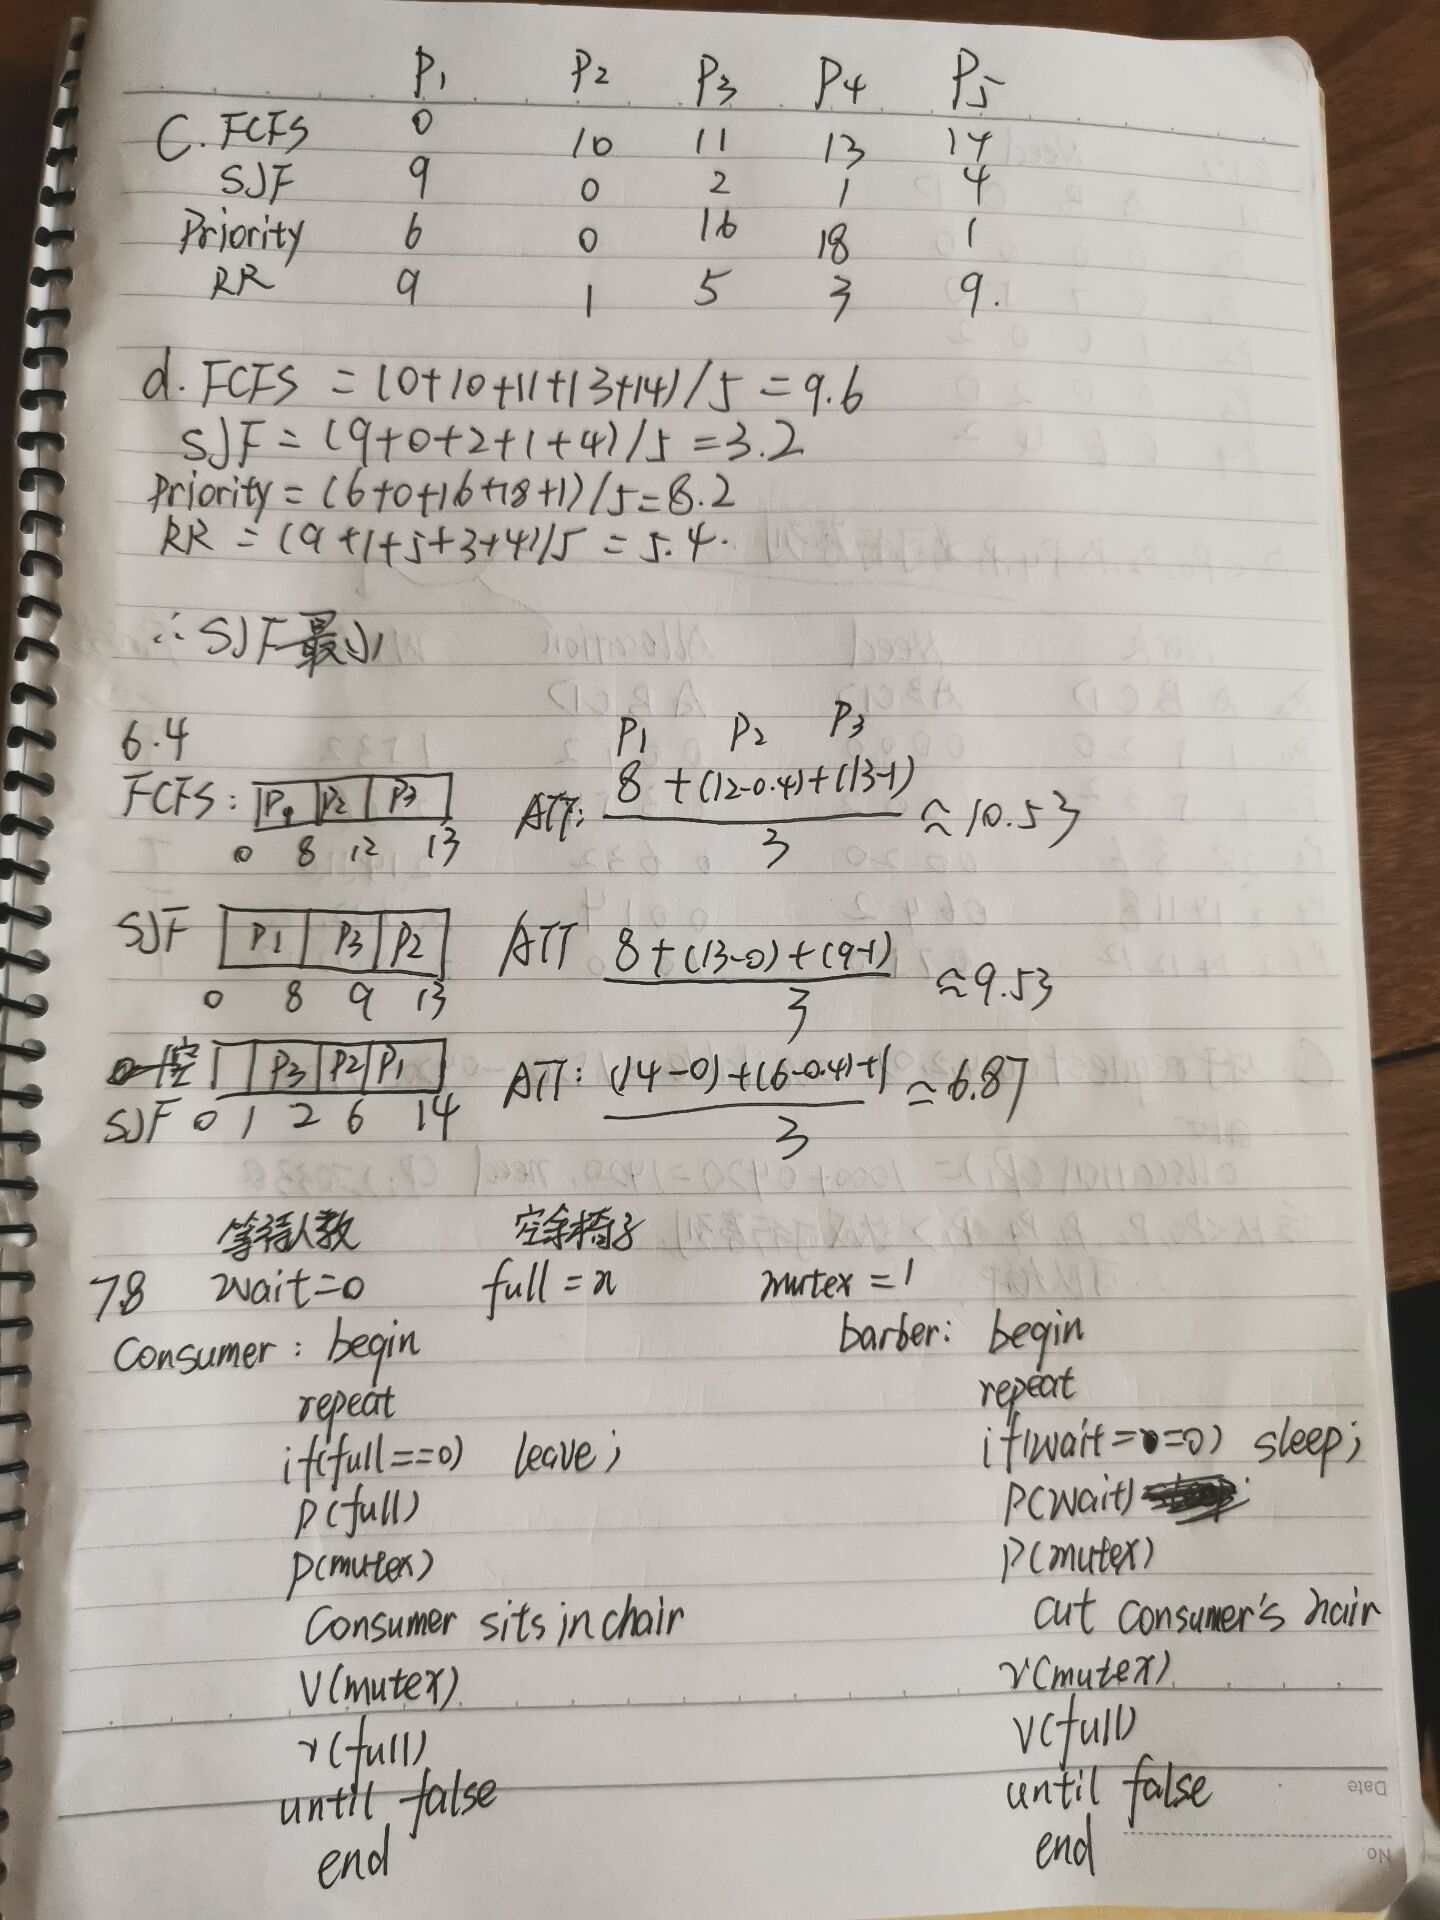 P1 P2 P3 P4 P5
C. FCFS 0 10 11 13 14
SJF 9 0 2 1 4
Priority 6 0 16 18 1
RR 9 1 5 3 9.
d. FCFS = (0+10+11+13+14)/5 = 9.6
SJF = (9+0+2+1+4)/5 = 3.2
Priority = (6+0+16+18+1)/5 = 8.2
RR = (9+1+5+3+4)/5 = 5.4.
∴ SJF最小
6.4
P1 P2 P3
FCFS: P1 P2 P3 ATT: 8+(12-0.4)+(13-1)
3
≈10.53
0 8 12 13
SJF P1 P3 P2 ATT 8+(13-0)+(9-1)
3
≈9.53
0 8 9 13
空 P3 P2 P1 ATT: (14-0)+(6-0.4)+1
3
≈6.87
SJF 0 1 2 6 14
等待人数 空余椅子
7.8 wait=0 full=n mutex=1
Consumer: begin
repeat
if(full==0) leave;
P(full)
P(mutex)
Consumer sits in chair
V(mutex)
v(full)
until false
end
barber: begin
repeat
if(wait==0) sleep;
P(wait)
P(mutex)
cut consumer's hair
v(mutex)
V(full)
until false
end
Date
No.